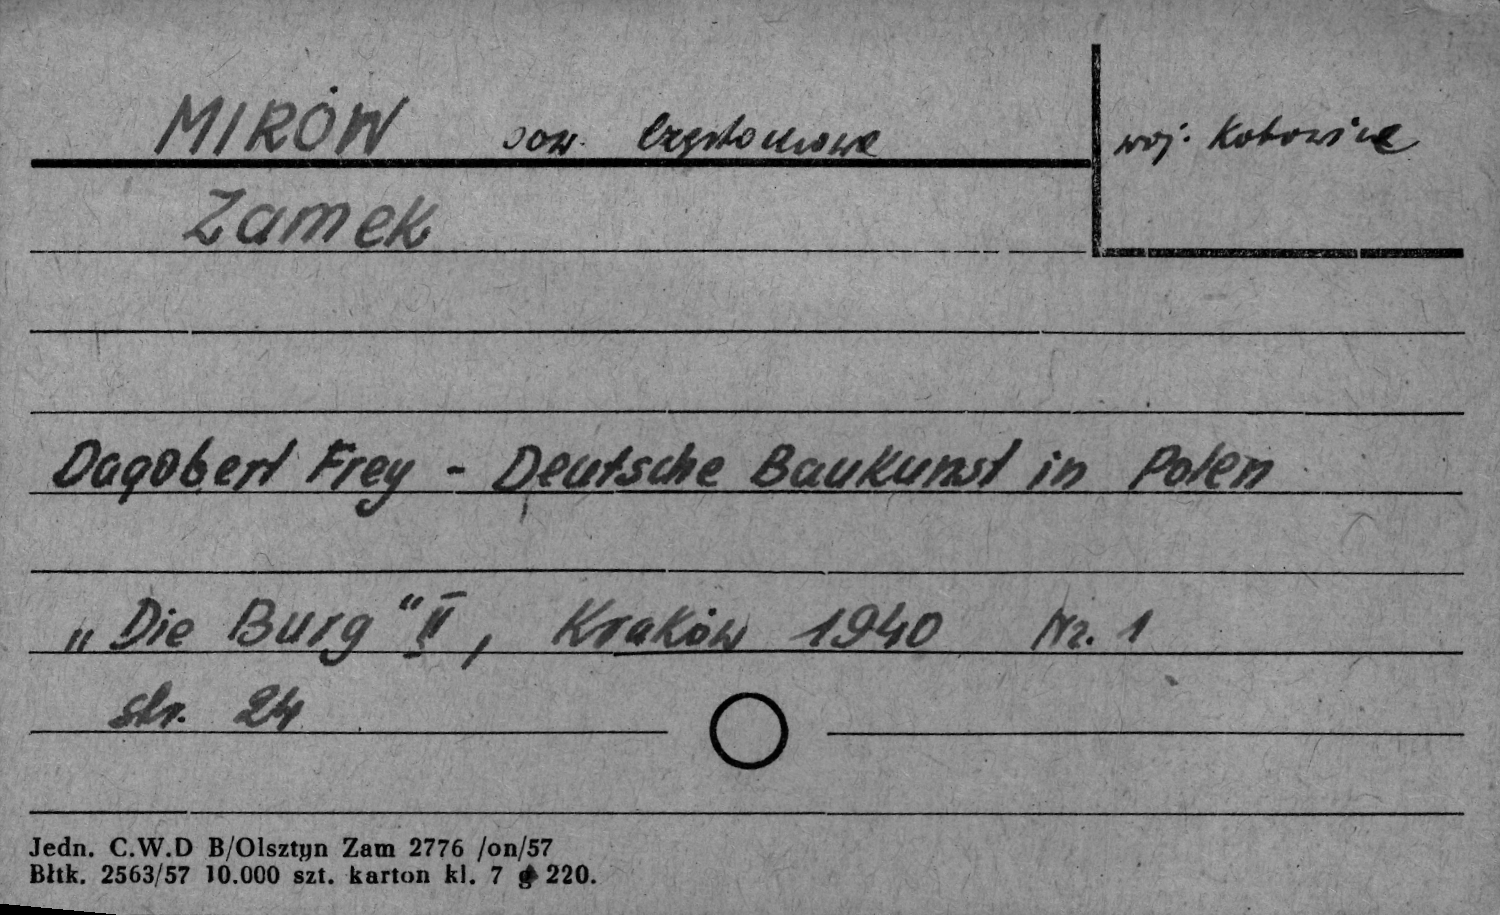 MIRÓW pow. Częstochowa woj. Katowice
Zamek
Dagobert Frey - Deutsche Baukunst in Polen
„Die Burg“ II, Kraków 1940 Nr. 1
str. 24
Jedn. C.W.D B/Olsztyn Zam 2776 /on/57
Błtk. 2563/57 10.000 szt. karton kl. 7 g 220.